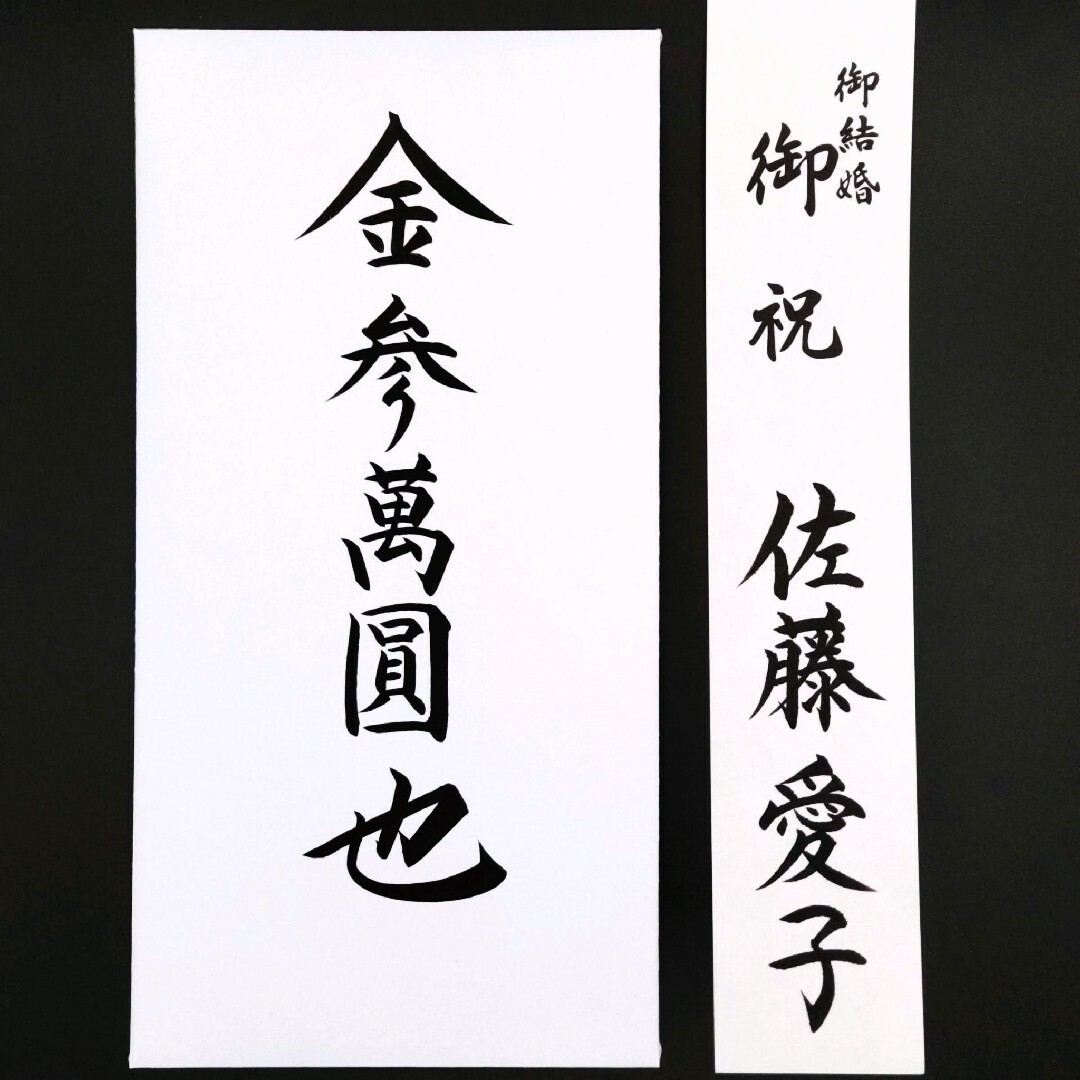 金参萬圓也
御結婚
御祝
佐藤愛子